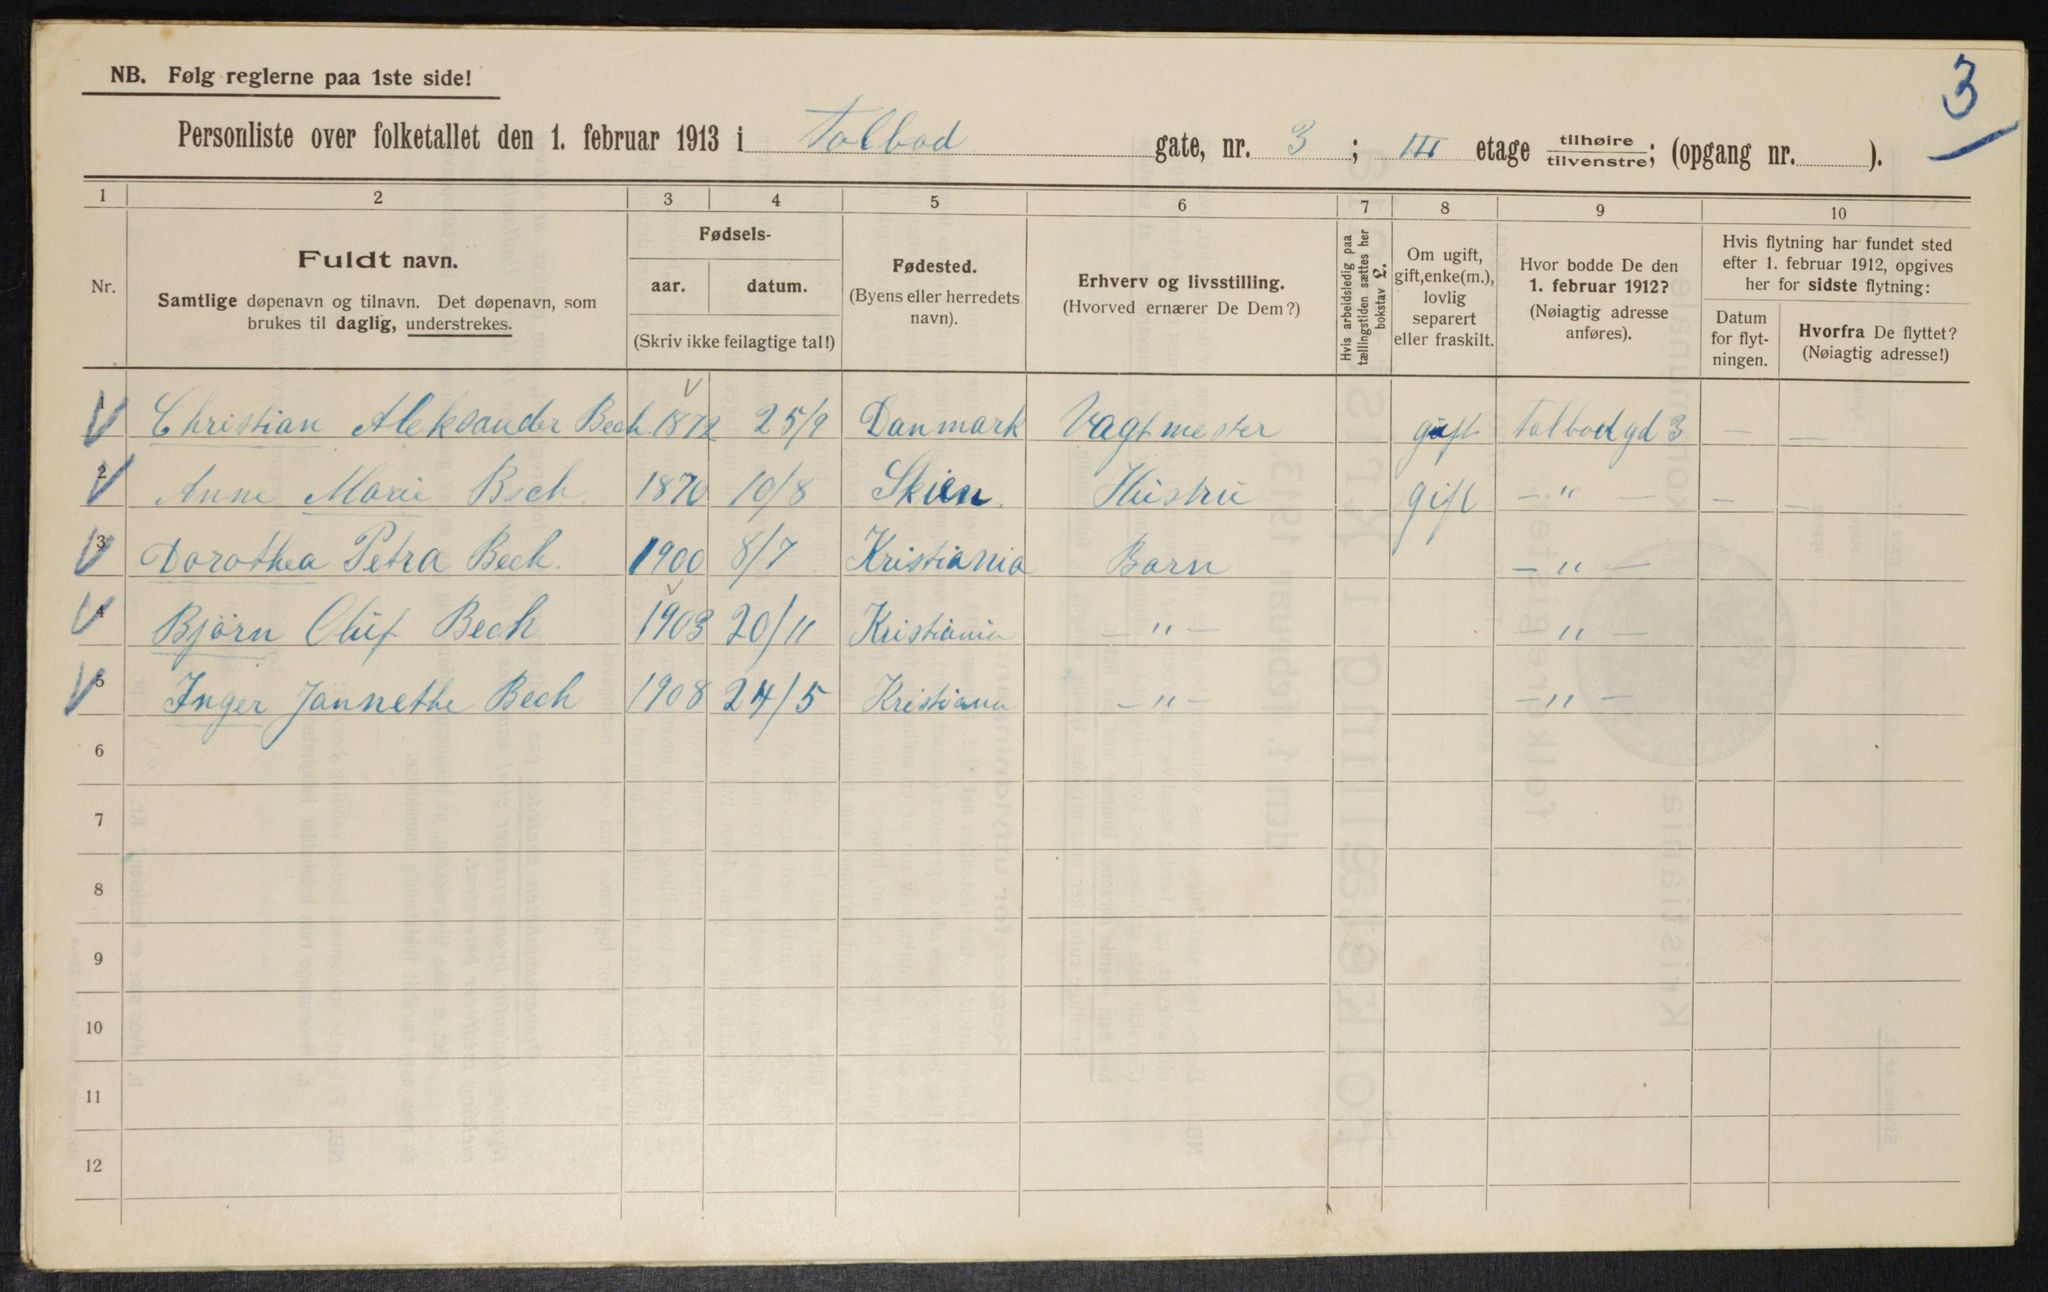 NB. Følg reglerne paa 1ste side!
3
Personliste over folketallet den 1. februar 1913 i Tolbod gate, nr. 3 ; III etage tilhøire/tilvenstre; (opgang nr. ).
1 2 3 4 5 6 7 8 9 10
Nr.
Fuldt navn.
Samtlige døpenavn og tilnavn. Det døpenavn, som
brukes til daglig, understrekes.
Fødsels-
aar. datum.
(Skriv ikke feilagtige tal!)
Fødested.
(Byens eller herredets
navn).
Erhverv og livsstilling.
(Hvorved ernærer De Dem?)
Hvis arbeidsledig paa
tællingstiden sættes her
bokstav L.
Om ugift,
gift, enke(m.),
lovlig
separert
eller fraskilt.
Hvor bodde De den
1. februar 1912?
(Nøiagtig adresse
anføres).
Hvis flytning har fundet sted
efter 1. februar 1912, opgives
her for sidste flytning:
Datum
for flyt-
ningen.
Hvorfra De flyttet?
(Nøiagtig adresse!)
1 Christian Aleksander Bech 1872 25/9 Danmark Vagtmester gift Tolbodgd 3 — —
2 Anne Marie Bech 1870 10/8 Skien. Hustru gift — " — — —
3 Dorothea Petra Bech. 1900 8/7 Kristiania Barn — " —
4 Bjørn Oluf Bech 1903 20/11 Kristiania — " — — " —
5 Inger Jannethe Bech 1908 24/5 Kristiania — " — — " —
6
7
8
9
10
11
12